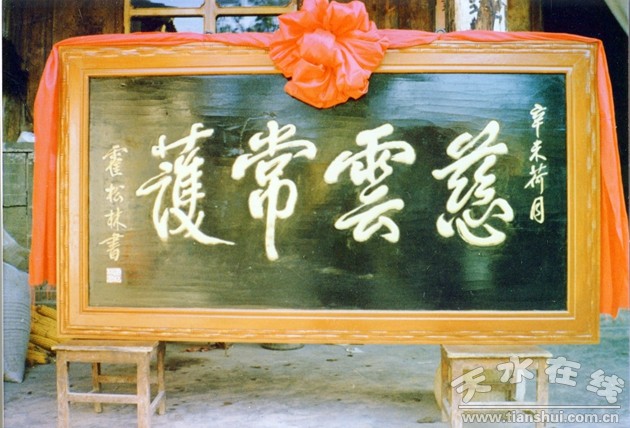 辛未荷月
慈雲常護
霍松林書
天水在线
www.tianshui.com.cn